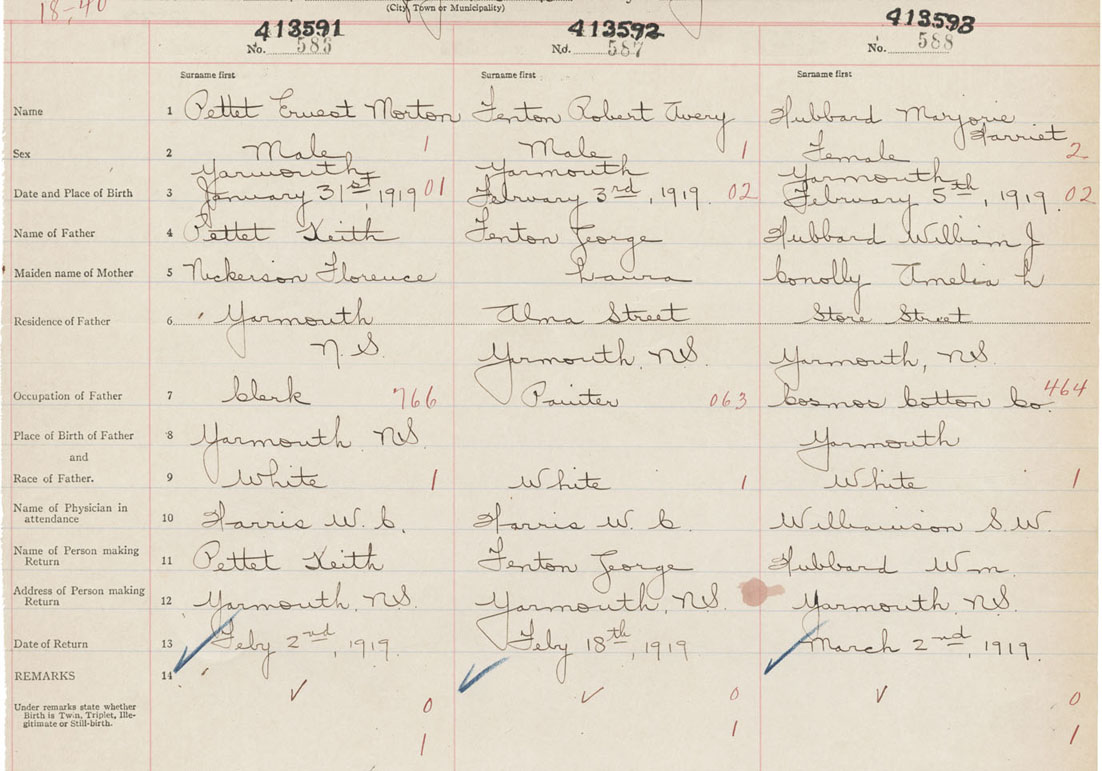 18-40
(City, Town or Municipality)
413591 413592 413593
No. 583 No. 587 No. 588
Surname first Surname first Surname first
Name 1 Pettet Ernest Morton Fenton Robert Avery Hubbard Marjorie
Harriet
Sex 2 Male 1 Male 1 Female 2
Yarmouth Yarmouth Yarmouth
Date and Place of Birth 3 January 31st, 1919 01 February 3rd, 1919. 02 February 5th, 1919. 02
Name of Father 4 Pettet Keith Fenton George Hubbard William J
Maiden name of Mother 5 Nickerson Florence Laura Conolly Amelia L
Residence of Father 6 Yarmouth Alma Street Store Street
N.S. Yarmouth, N.S. Yarmouth, N.S.
Occupation of Father 7 Clerk 766 Painter 063 Cosmos Cotton Co. 464
Place of Birth of Father 8 Yarmouth N.S. Yarmouth
and
Race of Father. 9 White 1 White 1 White 1
Name of Physician in
attendance 10 Harris W. C. Harris W. C. Williamson S.W.
Name of Person making
Return 11 Pettet Keith Fenton George Hubbard Wm.
Address of Person making
Return 12 Yarmouth, N.S. Yarmouth, N.S. Yarmouth, N.S.
Date of Return 13 Feby 2nd, 1919. Feby 18th, 1919 March 2nd, 1919.
REMARKS 14
Under remarks state whether
Birth is Twin, Triplet, Ille-
gitimate or Still-birth.
0 0 0
1 1 1